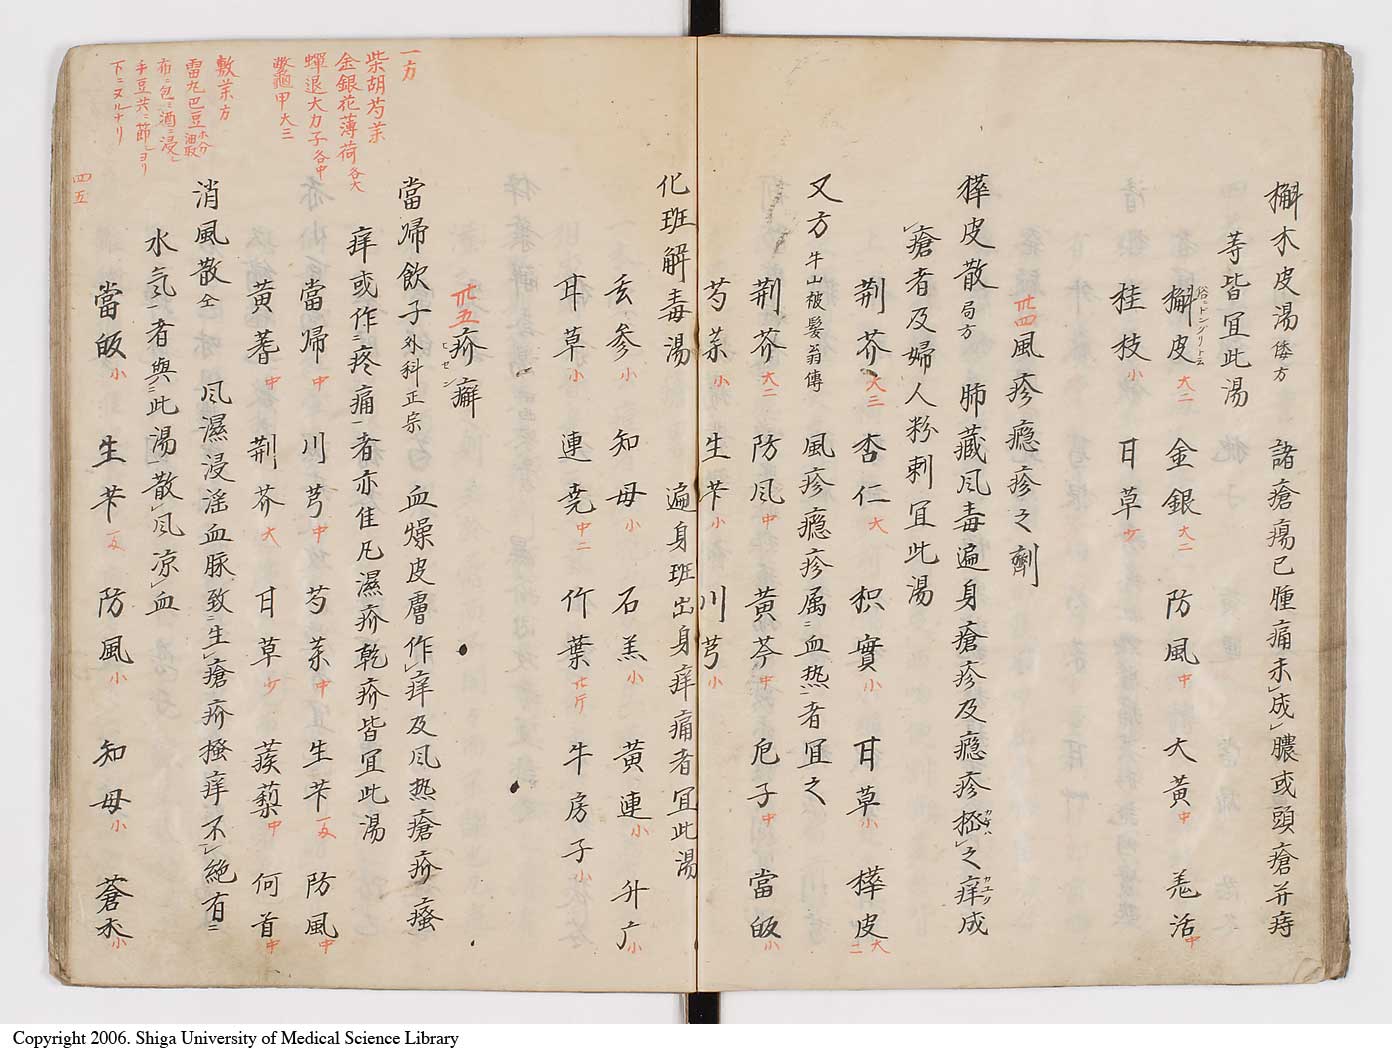 槲木皮湯 倭方 諸瘡瘍已腫痛未成膿或頭瘡并痔
䓁皆冝此湯
槲皮 大二 俗ニドングリト云 金銀 大二 防風 中 大黄 中 羗活 中
桂枝 小 甘草 少
卅四風疹癮疹之劑
樺皮散 局方 肺藏风毒遍身瘡疹及癮疹 之痒成
瘡者及婦人粉刺冝此湯
荆芥 大三 杏仁 大 枳實 小 甘草 小 樺皮 大二
又方 牛山被髮翁傳 風疹癮疹属ニ血热者冝之
荆芥 大二 防风 中 黄芩 中 梔子 中 當皈 小
芍薬 小 生芐 小 川芎 小
化班解毒湯 遍身班出身痒痛者冝此湯
玄参 小 知母 小 石羔 小 黄連 小 升广 小
甘草 小 連尭 中二 竹葉 廿斤 牛房子 小
卅五疥癬 ヒゼン
當帰飲子 外科正宗 血燥皮膚作痒及风热瘡疥瘙
痒或作ニ疼痛一者亦佳凡濕疥乾疥皆冝此湯
當帰 中 川芎 中 芍薬 中 生芐 防風 中
黄蓍 中 荆芥 大 甘草 少 蒺䔧 中 何首 中
消風散 仝 风濕浸淫血脉致ニ生瘡疥搔痒不絶有ニ
水氣者與ニ此湯散风凉血
當皈 小 生芐 防風 小 知母 小 蒼朮 小
一方
柴胡芍薬
金銀花薄荷 各大
蟬退大力子 各中
鼈甲 大三
敷薬方
雷丸巴豆 油取
布ニ包ミ酒ニ浸シ
手豆共ニ節ヨリ
下ニヌルナリ
四五
Copyright 2006. Shiga University of Medical Science Library